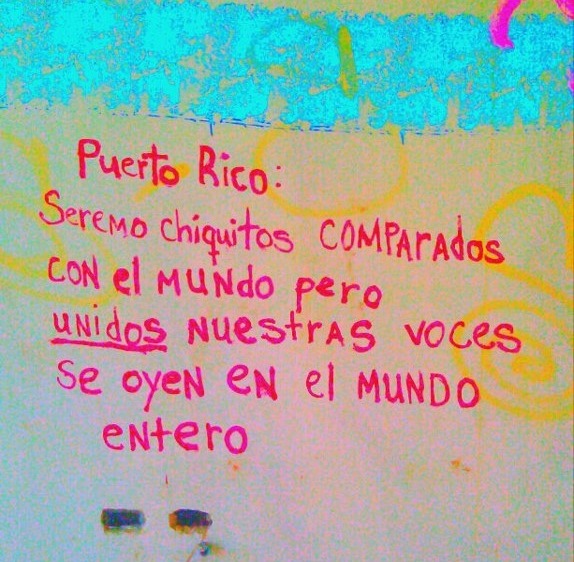 Puerto Rico:
Seremo chiquitos COMPARAdos
CON el MUNdo pero
UNidos NUEStRAS VOCES
Se oyeN EN el MUNDO
ENtero